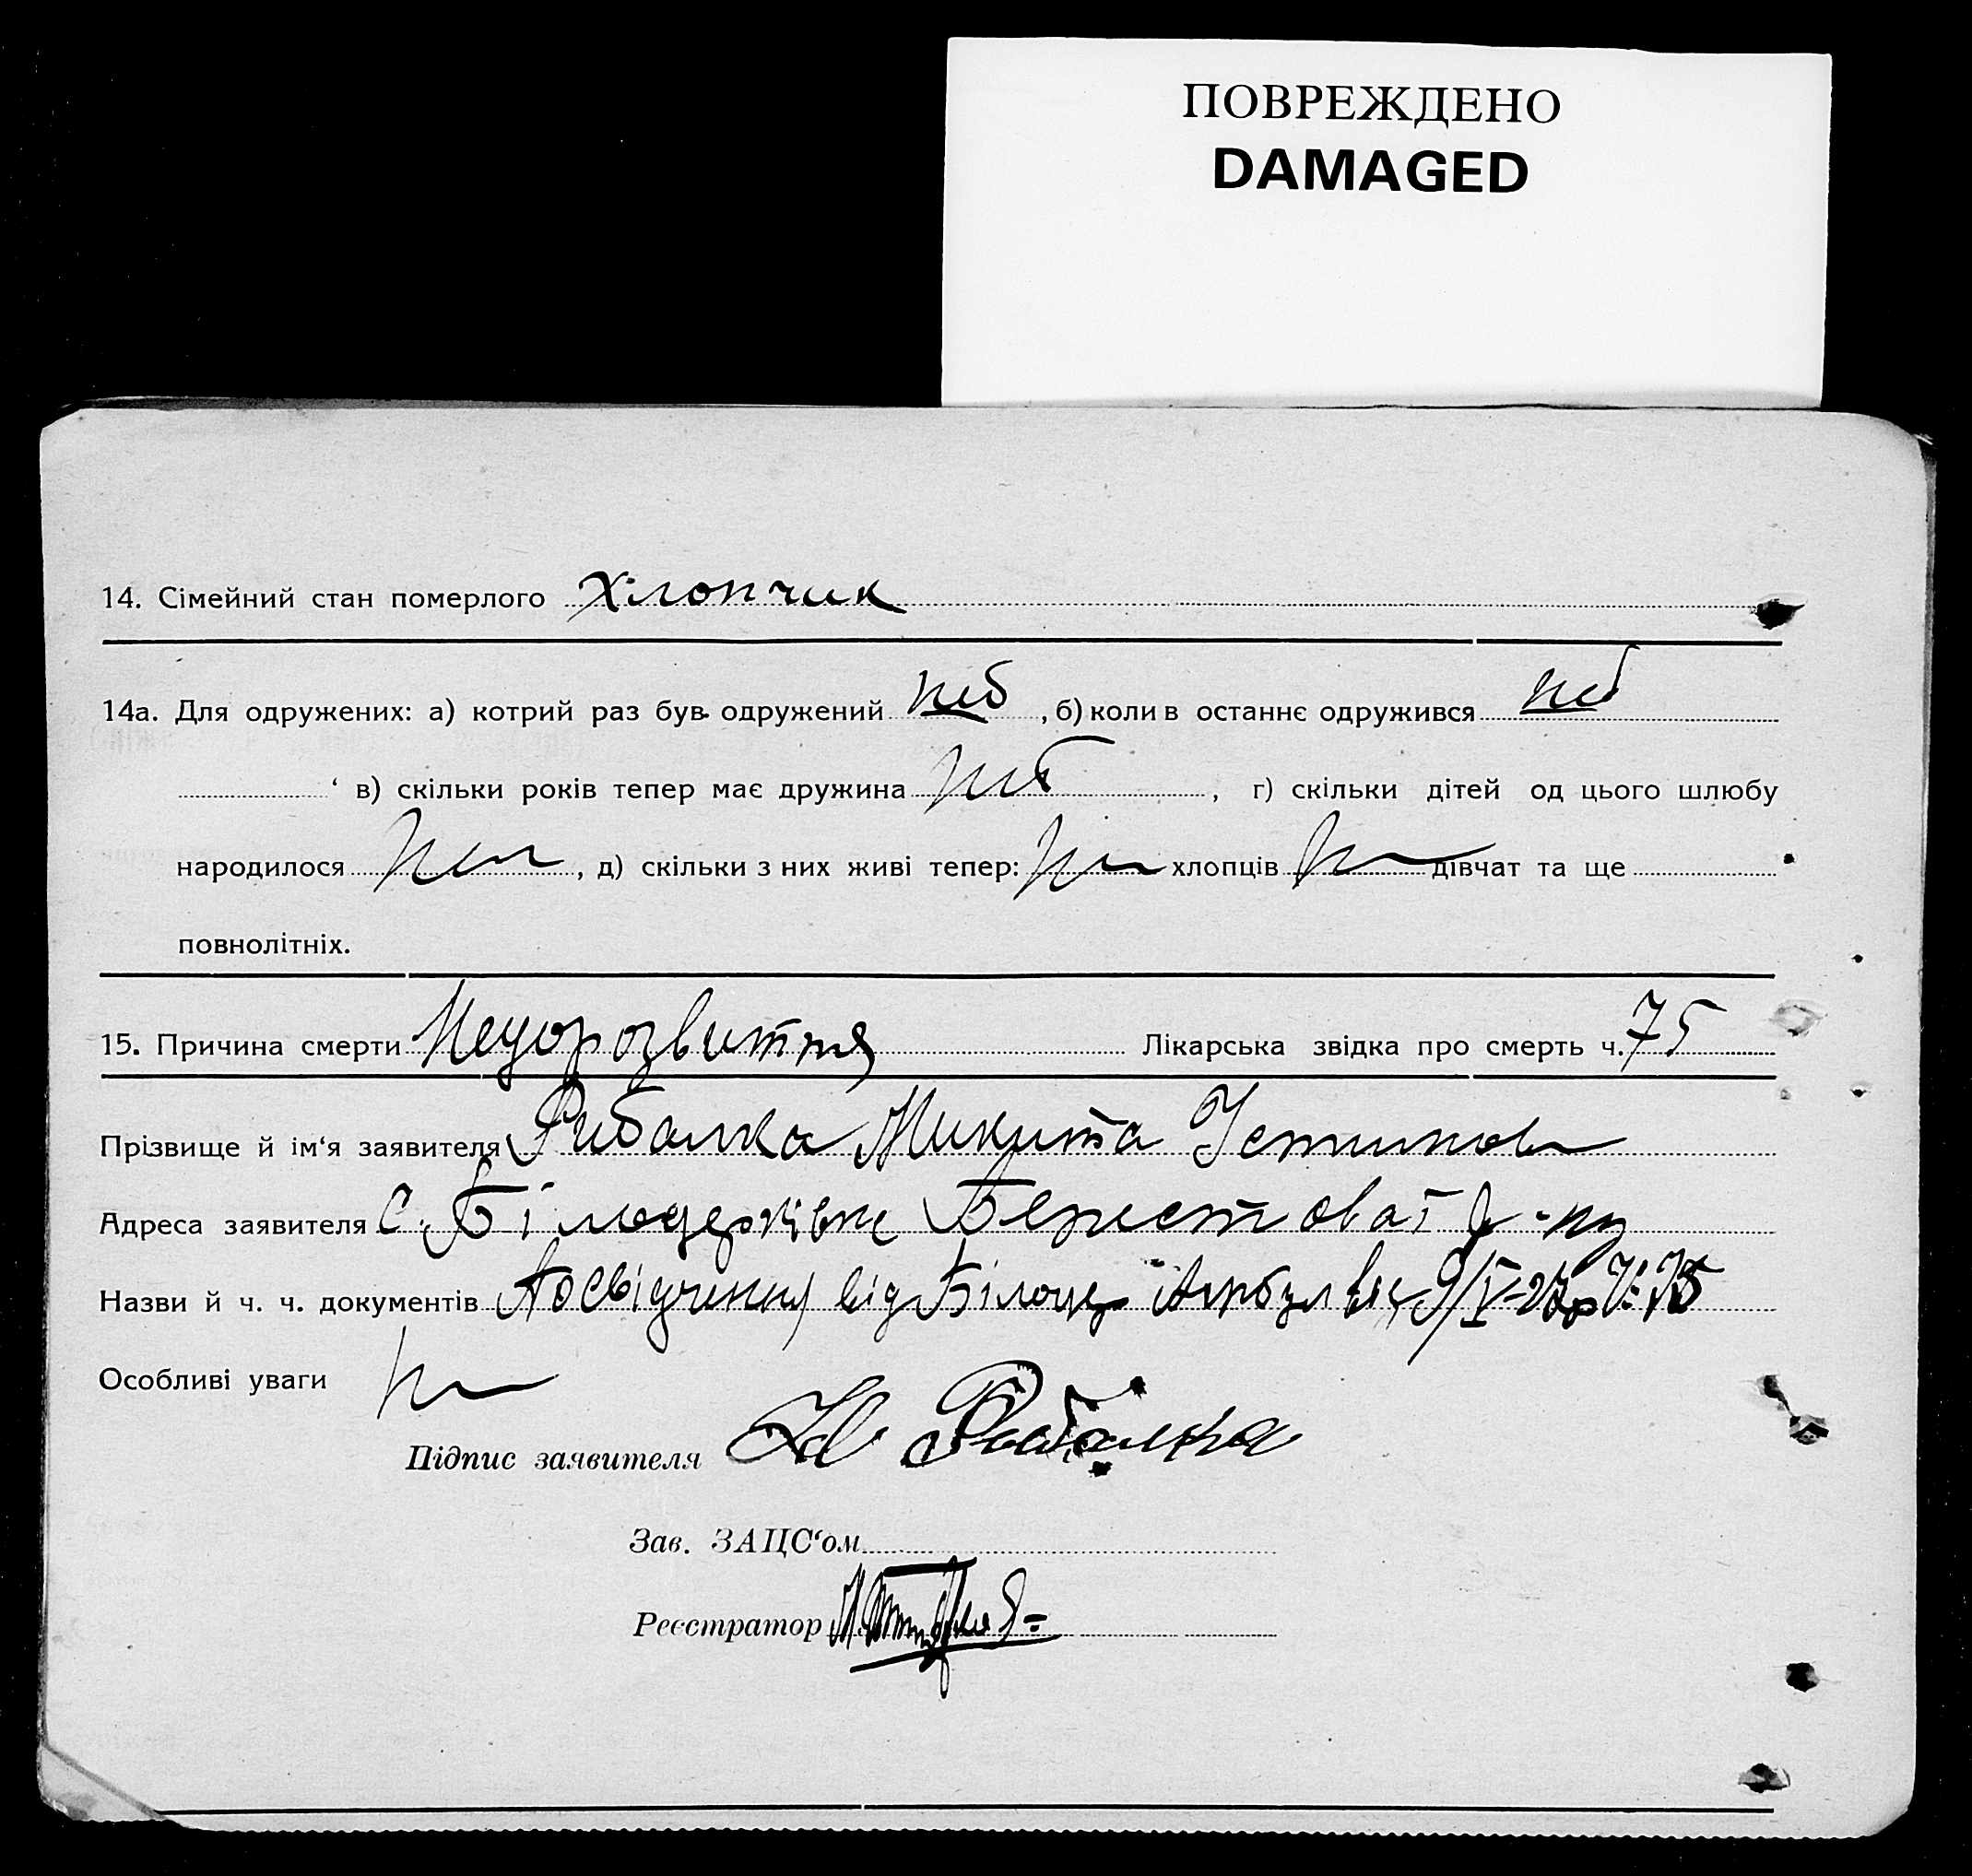 ПОВРЕЖДЕНО
DAMAGED
14. Сімейний стан померлого Хлопчик
14а. Для одружених: а) котрий раз був одружений , б) коли в останнє одружився
‘ в) скільки років тепер має дружина , г) скільки дітей од цього шлюбу
народилося , д) скільки з них живі тепер: хлопців дівчат та ще
повнолітніх.
15. Причина смерти Недорозвиття Лікарська звідка про смерть ч. 75
Прізвище й ім‘я заявителя Рибалка Микита Устинов
Адреса заявителя с. Біло Берестоват р-ну
Назви й ч. ч. документів Посвідчення від Білоц 9/V-27р № 75
Особливі уваги
Підпис заявителя Рибалка
Зав. ЗАЦС‘ом
Реєстратор